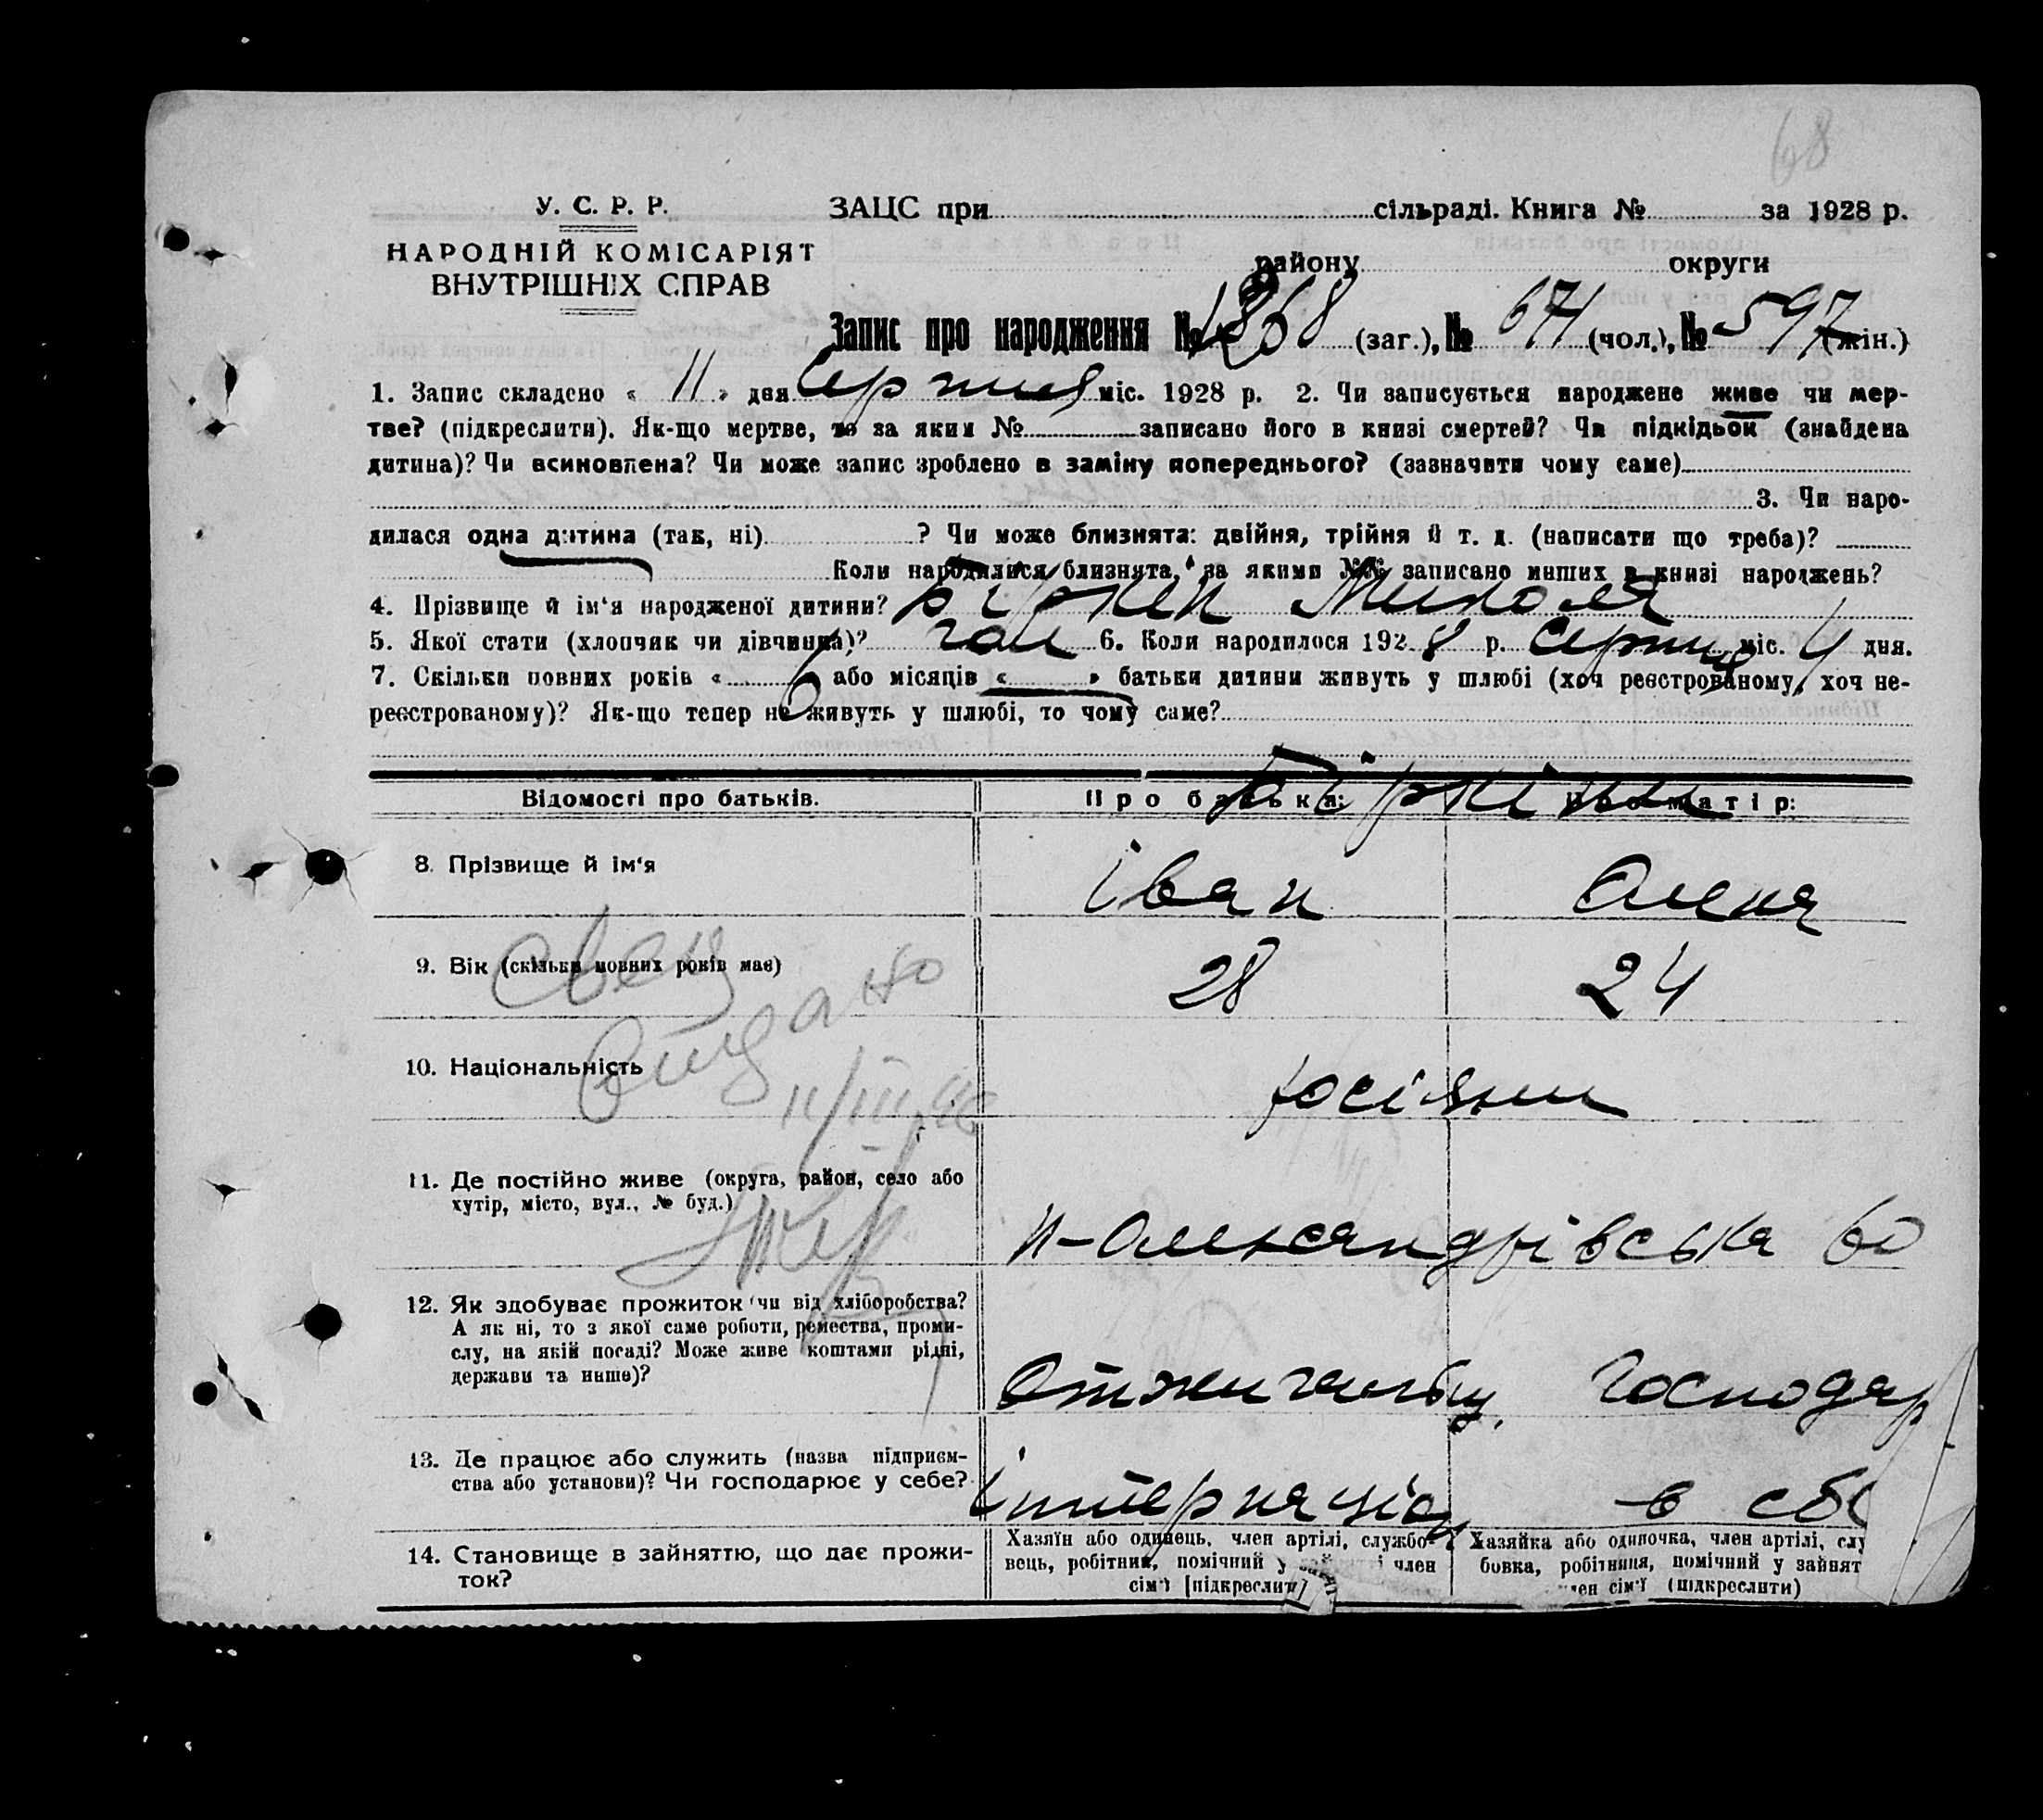 68
У. С. Р. Р.
НАРОДНІЙ КОМІСАРІЯТ
ВНУТРІШНІХ СПРАВ
ЗАЦС при сільраді. Книга № за 1928 р.
району округи
Запис про народження № 1268 (заг.), № 671 (чол.), № 597 (жін.)
1. Запис складено « 11 » дня Серпня міс. 1928 р. 2. Чи записується народжене живе чи мер-
тве? (підкреслити). Як-що мертве, то за яким № записано його в книзі смертей? Чи підкідьок (знайдена
дитина)? Чи всиновлена? Чи може запис зроблено в заміну попереднього? (зазначити чому саме)
3. Чи наро-
дилася одна дитина (так, ні) ? Чи може близнята: двійня, трійня й т. д. (написати що треба)?
Коли народилися близнята, за якими №№ записано инших в книзі народжень?
4. Прізвище й ім‘я народженої дитини? Біркін Микола
5. Якої стати (хлопчик чи дівчинка)? чол 6. Коли народилося 1928 р. Серпня міс. 4 дня.
7. Скільки повних років « 6 або місяців « » батьки дитини живуть у шлюбі (хоч реєстрованому, хоч не-
реєстрованому)? Як-що тепер не живуть у шлюбі, то чому саме?
Відомості про батьків. Про батька: Про матір:
Біркіни
8. Прізвище й ім‘я Іван Олена
9. Вік (скільки повних років має) 28 24
10. Національність росіяни
11. Де постійно живе (округа, район, село або
хутір, місто, вул., № буд.)
Н-Олександрівська 60
12. Як здобуває прожиток чи від хліборобства?
А як ні, то з якої саме роботи, ремества, проми-
слу, на якій посаді? Може живе коштами рідні,
держави та инше)?
Отжигальщ. Господар
13. Де працює або служить (назва підприєм-
ства або установи)? Чи господарює у себе?
Інтернаціон в себ
14. Становище в зайняттю, що дає прожи-
ток?
Хазяїн або одинець, член артілі, службо-
вець, робітник, помічний у член
сім‘ї [підкреслити]
Хазяйка або одиночка, член артілі, слу
бовка, робітниця, помічний у зайнят
член сім‘ї (підкреслити)
выдано
11/III 46